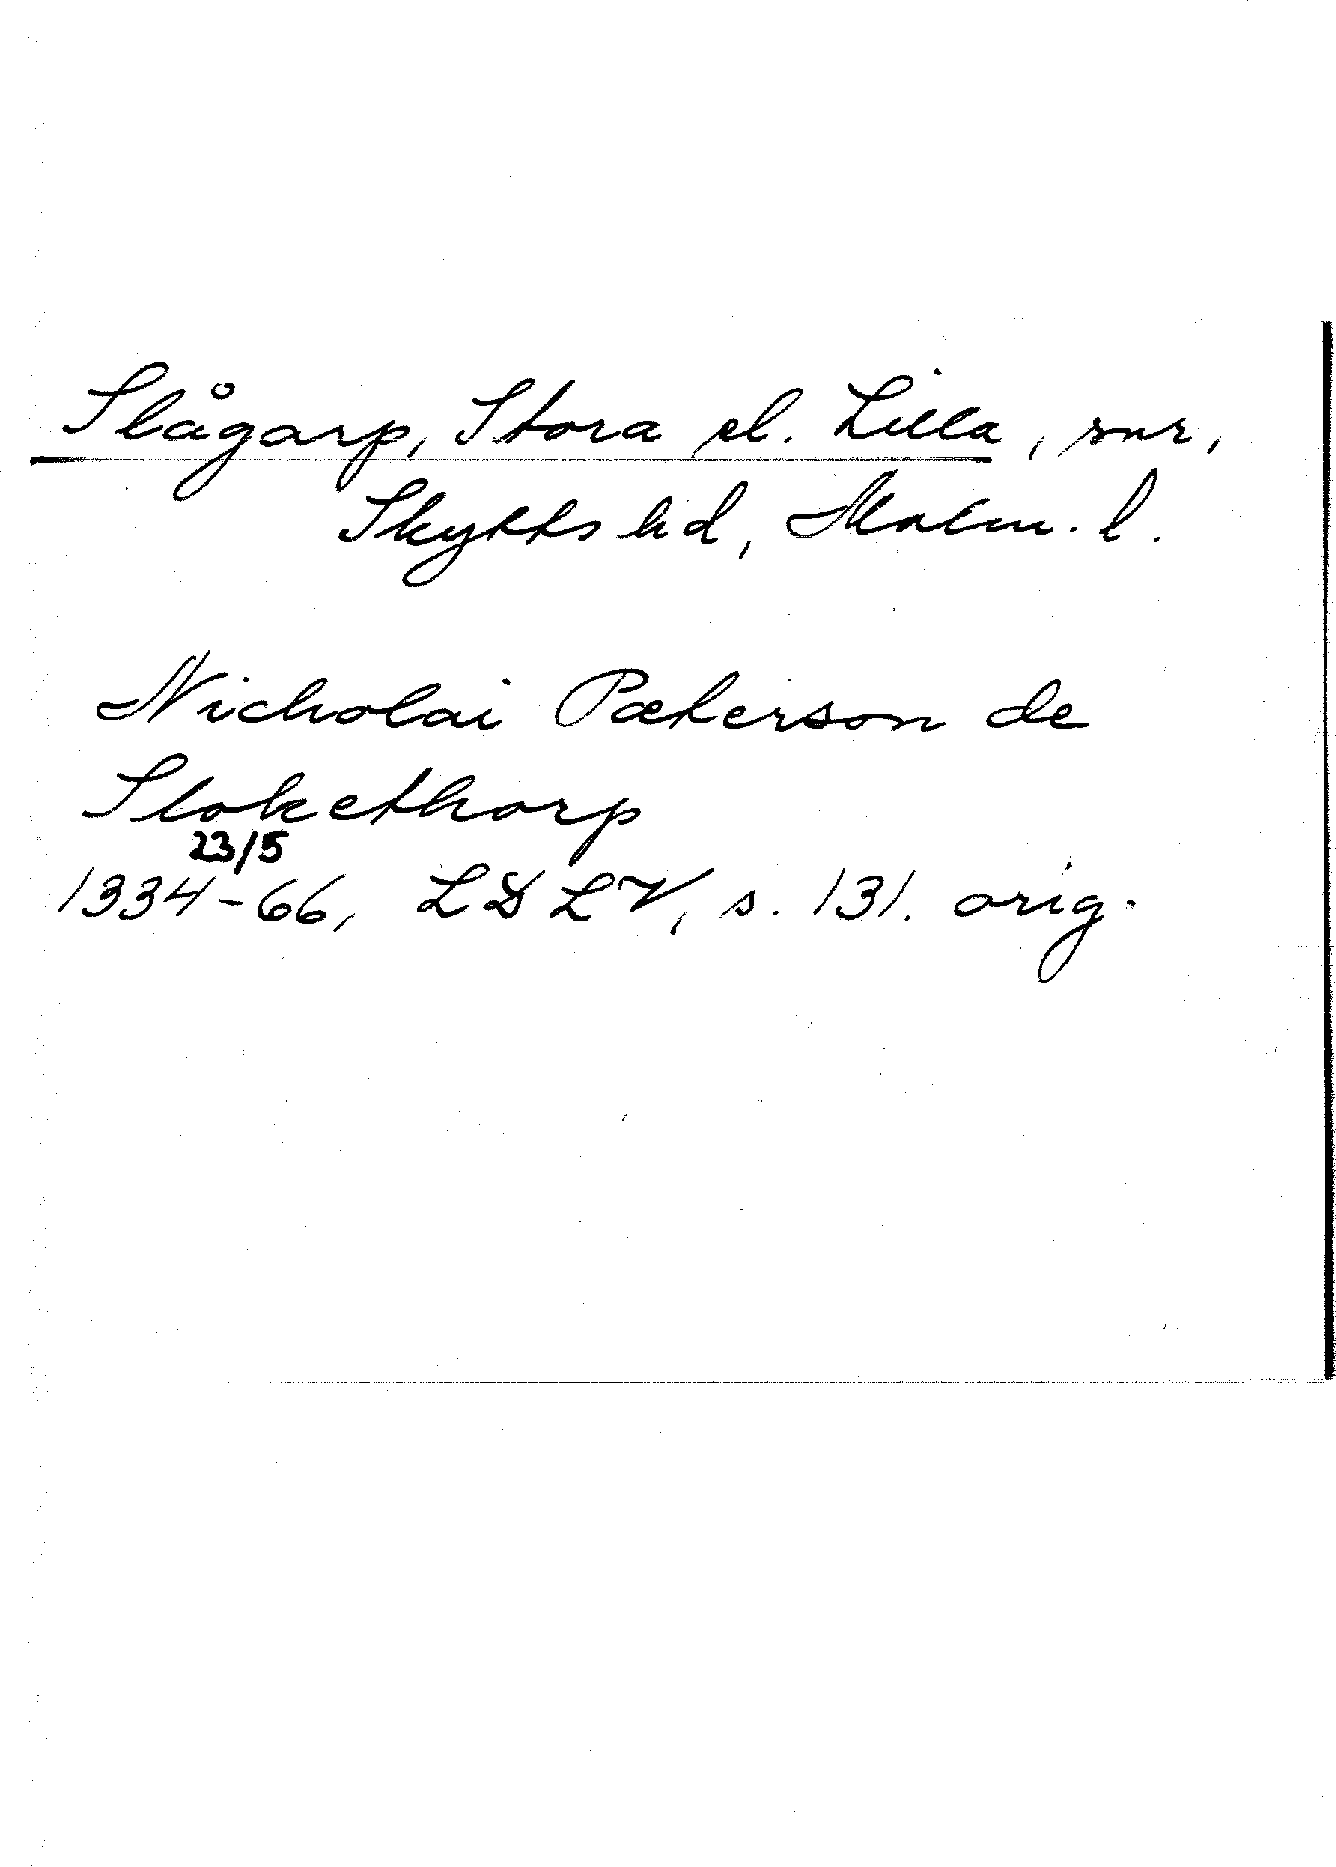 Slågarp, Stora el. Lilla, snr,
Skytts hd, Malm. l.
Nicholai Pæterson de
Slokethorp
23/5
1334-66, LDLV, s. 131. orig.